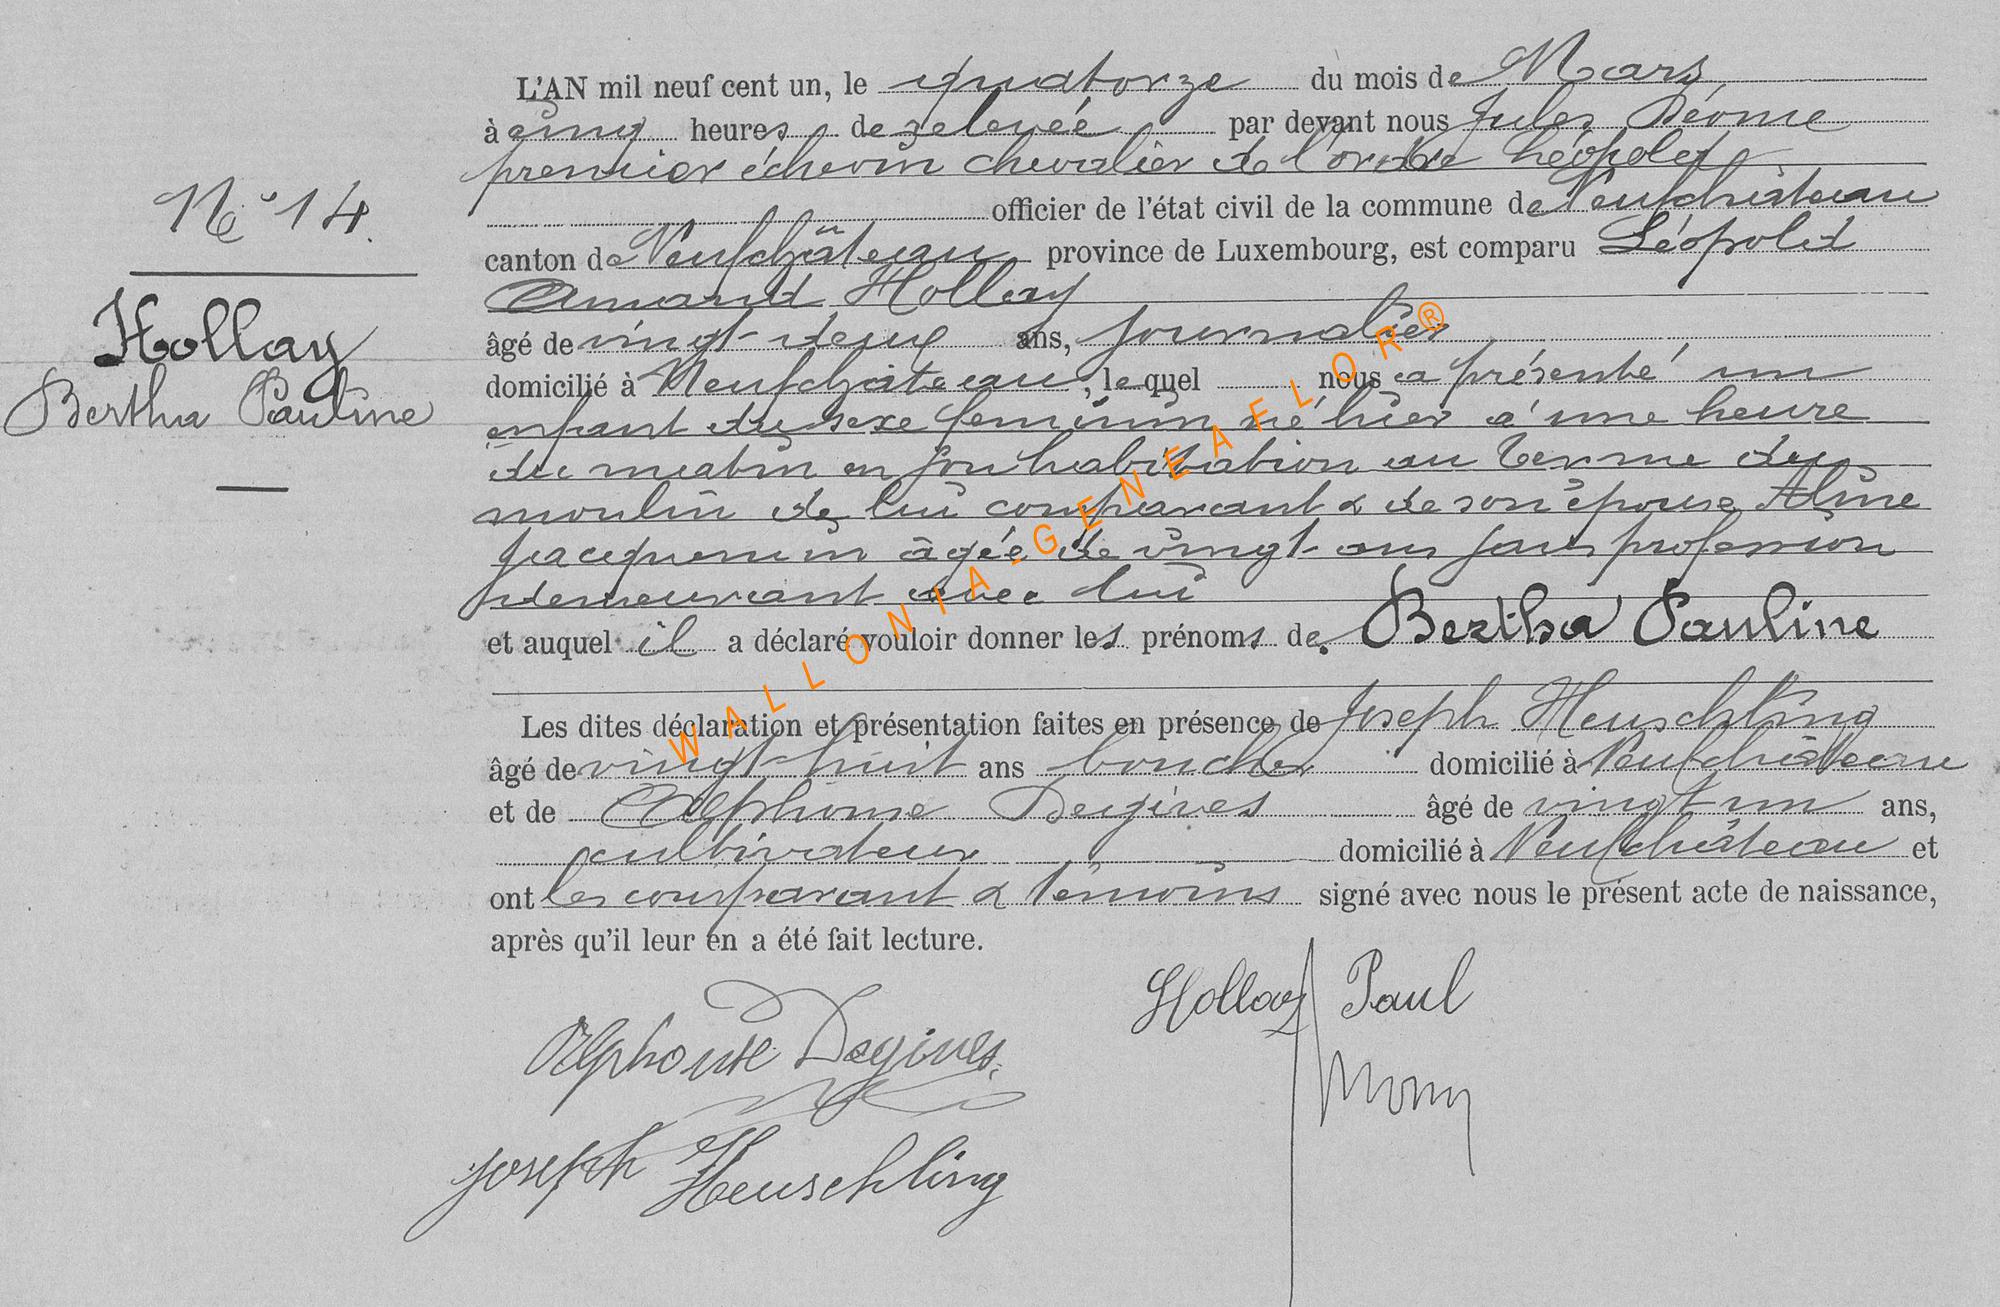 L'AN mil neuf cent un, le quatorze du mois de Mars
à cinq heures de relevée par devant nous Jules Déome
premier échevin chevalier de l'ordre Léopold
officier de l'état civil de la commune de Neufchâteau
canton de Neufchâteau province de Luxembourg, est comparu Léopold
Amand Hollay
N° 14.
Hollay
Bertha Pauline
âgé de vingt-deux ans, journalier
domicilié à Neufchâteau, lequel nous a présenté un
enfant du sexe féminin né hier à une heure
du matin en son habitation au Terme du
moulin de lui comparant & de son épouse Aline
Jacquemin âgée de vingt ans sans profession
demeurant avec lui
et auquel il a déclaré vouloir donner les prénoms de Bertha Pauline
Les dites déclaration et présentation faites en présence de Joseph Heuschling
âgé de vingt-huit ans boucher domicilié à Neufchâteau
et de Alphonse Degives âgé de vingt un ans,
cultivateur domicilié à Neufchâteau et
ont les comparant & témoins signé avec nous le présent acte de naissance,
après qu'il leur en a été fait lecture.
Hollay Paul
Alphonse Degives
Joseph Heuschling
WALLONIA-GENEAFLOR®